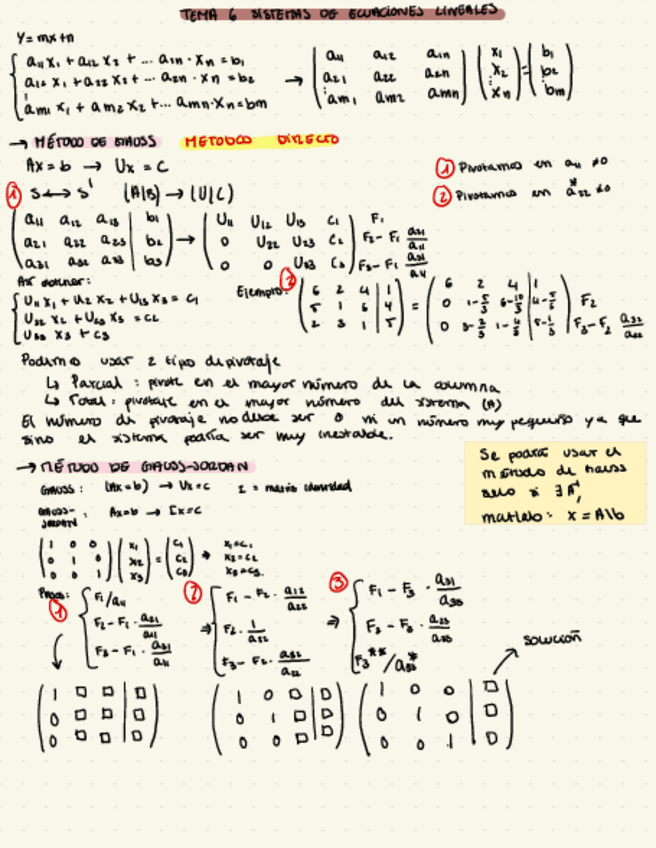 TEMA 6 SISTEMAS DE ECUACIONES LINEALES
Y = mx+n
a11 x1 + a12 x2 + ... a1n · xn = b1
a12 x1 + a22 x2 + ... a2n · xn = b2
am1 x1 + am2 x2 + ... amn·xn = bm
→ ( a11 a12 a1n ) ( x1 ) = ( b1 )
a21 a22 a2n x2 b2
am1 am2 amn xn bm
→ MÉTODO DE GAUSS METODOO DIRECTO
Ax = b → Ux = C
① Pivotamos en a11 ≠0
② Pivotamos en a*22 ≠0
① S ↔ S' (A|B) → (U|C)
( a11 a12 a13 | b1 ) → ( U11 U12 U13 C1 ) F1
a21 a22 a23 | b2 0 U22 U23 C2 F2 - F1 a21/a11
a31 a32 a33 | b3 0 0 U33 C3 F3 - F1 a31/a11
Así obtener:
U11 X1 + U2 X2 + U13 X3 = C1
U22 X2 + U23 X3 = C2
U33 X3 + C3
Ejemplo: ②
( 6 2 4 | 1 ) = ( 6 2 4 | 1 )
5 1 6 | 4 0 F2
2 3 1 | 5 0 F3 - F2 a32/a22
Podemos usar 2 tipo de pivotaje
↳ Parcial : pivote en el mayor número de la columna
↳ Total : pivotaje en el mayor número del sistema (A)
El número de pivotaje no debe ser 0 ni un número muy pequeño ya que
sino el sistema podría ser muy inestable.
→ MÉTODO DE GAUSS-JORDAN
GAUSS : (Ax=b) → Ux=c I = matriz identidad
GAUSS-JORDAN : Ax=b → Ix=c
Se podrá usar el
método de Gauss
solo si ∃ A⁻¹,
matlab: x = A\b
( 1 0 0 ) ( x1 ) = ( c1 ) → x1=c1
0 1 0 x2 c2 x2=c2
0 0 1 x3 c3 x3=c3
Proc:
① F1/a11
F2 - F1 · a21/a11
F3 - F1 · a31/a11
② F1 - F2 · a12/a22
F2 · 1/a22
F3 - F2 · a32/a22
⇒ ③ F1 - F3 · a31/a33
F2 - F3 · a23/a33
F3** / a33*
SOLUCIÓN
( 1 □ □ | □ ) ( 1 0 □ | □ ) ( 1 0 0 | □ )
0 □ □ | □ 0 1 □ | □ 0 1 0 | □
0 □ □ | □ 0 0 □ | □ 0 0 1 | □